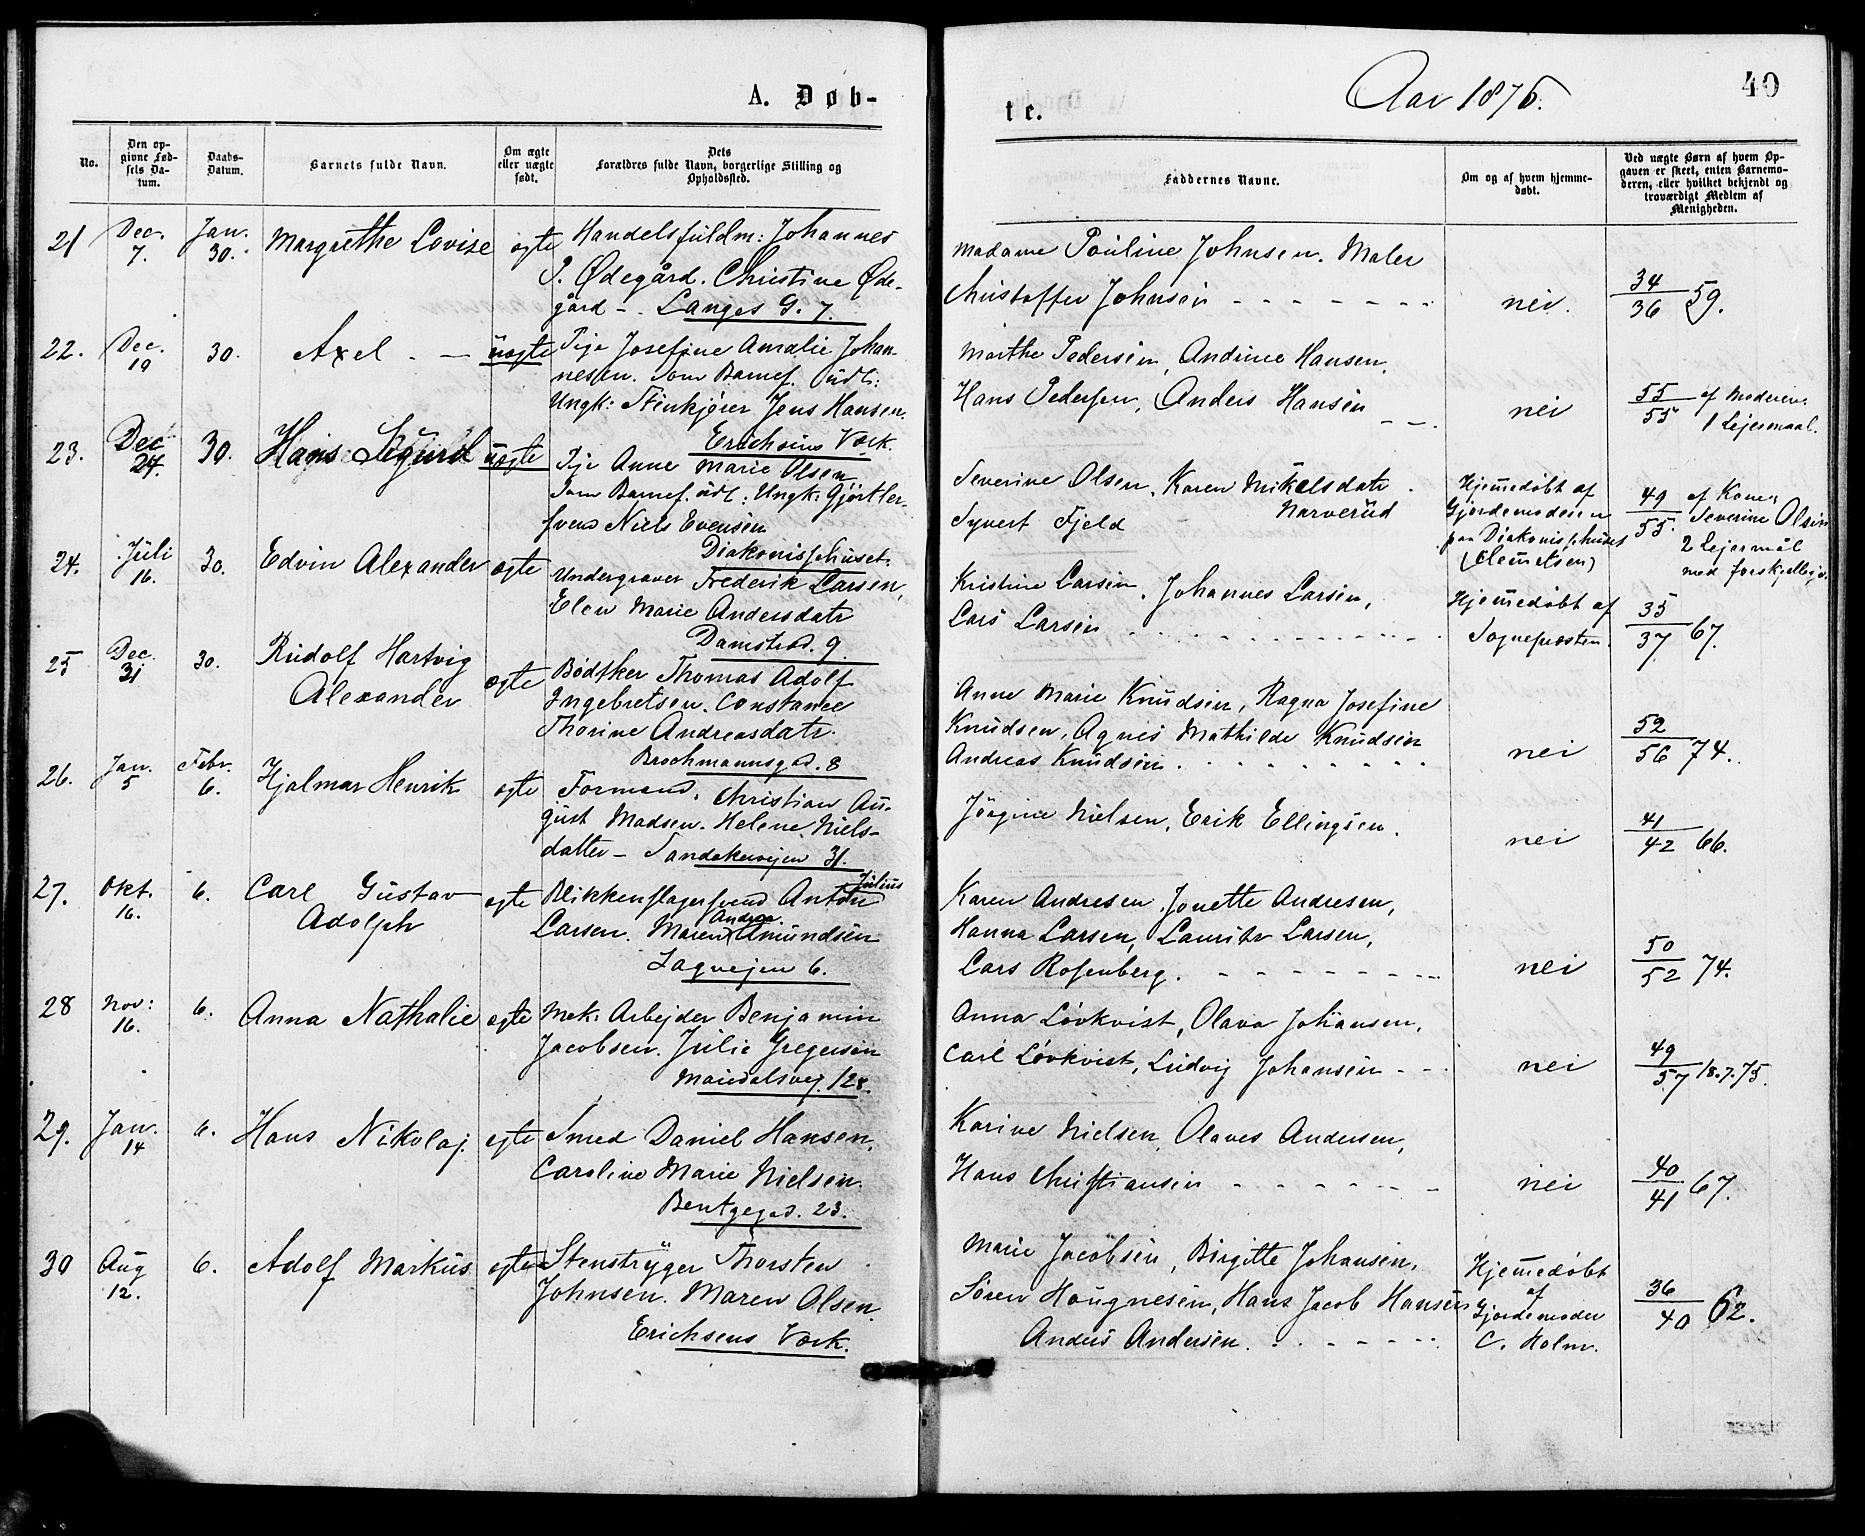 A. Døb-
No.
Den op-
givne Fød-
sels Da-
tum.
Daabs-
Datum.
Barnets fulde Navn.
Om ægte
eller uægte
født.
Dets
Forældres fulde Navn, borgerlige Stilling og
Opholdssted.
21 Dec. 7. Jan. 30. Margrethe Lovise ægte Handelsfuldm: Johannes
P. Ødegård. Christine Øde-
gård - Langes G. 7.
22. Dec. 19 30. Axel - uægte Pige Josefine Amalie Johan-
nesen. Som Barnef. udl:
Ungk: Stenkjører Jens Hansen.
Erichsens Værk.
23. Dec 24. 30. Hans Sigurd uægte Pige Anne Marie Olsen
Som Barnef. udl: Ungk: Gjørtler-
svend Niels Evensen
Diakonissehuset.
24. Juli 16. 30. Edvin Alexander ægte Undergraver Frederik Larsen,
Elen Marie Andersdatr
Damstræd. 9
25 Dec. 31 30. Rudolf Hartvig
Alexander ægte Bødtker Thomas Adolf
Ingebretsen. Constance
Thorine Andreasdatr.
Brochmannsgd. 8
26. Jan. 5 Febr. 6. Hjalmar Henrik ægte Formand. Christian Au-
gust Madsen. Helene Niels-
datter - Sandakerveien 31.
27. Okt. 16. 6. Carl Gustav
Adolph ægte Blikkenslagersvend Anton Julius
Larsen. Maren Andrea Amundsen
Sagveien 6.
28 Nov: 16. 6. Anna Nathalie ægte Mek. Arbejder Benjamin
Jacobsen. Julie Gregersen
Maridalsvej. 128.
29. Jan. 14 6. Hans Nikolaj. ægte Smed Daniel Hansen,
Caroline Marie Nielsen.
Bentzegad. 23.
30 Aug 12. 6. Adolf Markus ægte Stenstryger Thorsten
Johnsen. Maren Olsen.
Erichsens Værk.
te.
Aar 1876.
40
Faddernes Navne.
Om og af hvem hjemme-
døbt.
Ved uægte Børn af hvem Op-
gaven er skeet, enten Barnemo-
deren, eller hvilket bekjendt og
troværdigt Medlem af
Menigheden.
Madame Pauline Johnsen. Maler
Christoffer Johnsen - - - - - - - nei. 34/36 59.
Marthe Pedersen, Andrine Hansen,
Hans Pedersen, Anders Hansen - - nei 55/55 af Moderen.
1 Lejermaal.
Severine Olsen, Karen Mikelsdatr
Narverud
Syvert Fjeld
Hjemmedøbt af
Gjordemoderen
paa Diakonissehuset
(Clemetsen)
49/55. af Kone
Severine Olsen
2 Lejermål
med forskjellige.
Kristine Larsen, Johannes Larsen,
Lars Larsen - - - - - - - - - -
Hjemmedøbt af
Sognepresten.
35/37 67.
Anne Marie Knudsen, Ragna Josefine
Knudsen, Agnes Mathilde Knudsen
Andreas Knudsen. - - - - - - - - nei 52/56 74.
Jørgine Nielsen, Erik Ellingsen. nei 41/42 66.
Karen Andresen, Jonette Andresen,
Hanna Larsen, Lauritz Larsen,
Lars Rosenberg. - - - - - - - - nei 50/52 74.
Anna Løvkvist, Olava Johansen,
Carl Løvkvist, Ludvig Johansen - - - nei 49/57 18.7.75.
Karine Nielsen, Olaves Andersen,
Hans Christiansen - - - - - - - nei 40/41 67.
Marie Jacobsen, Birgitte Johansen,
Søren Haugnesen, Hans Jacob Hansen
Anders Andersen. - - - - - -
Hjemmedøbt
af
Gjordemoder
C. Holm.
36/40 62.